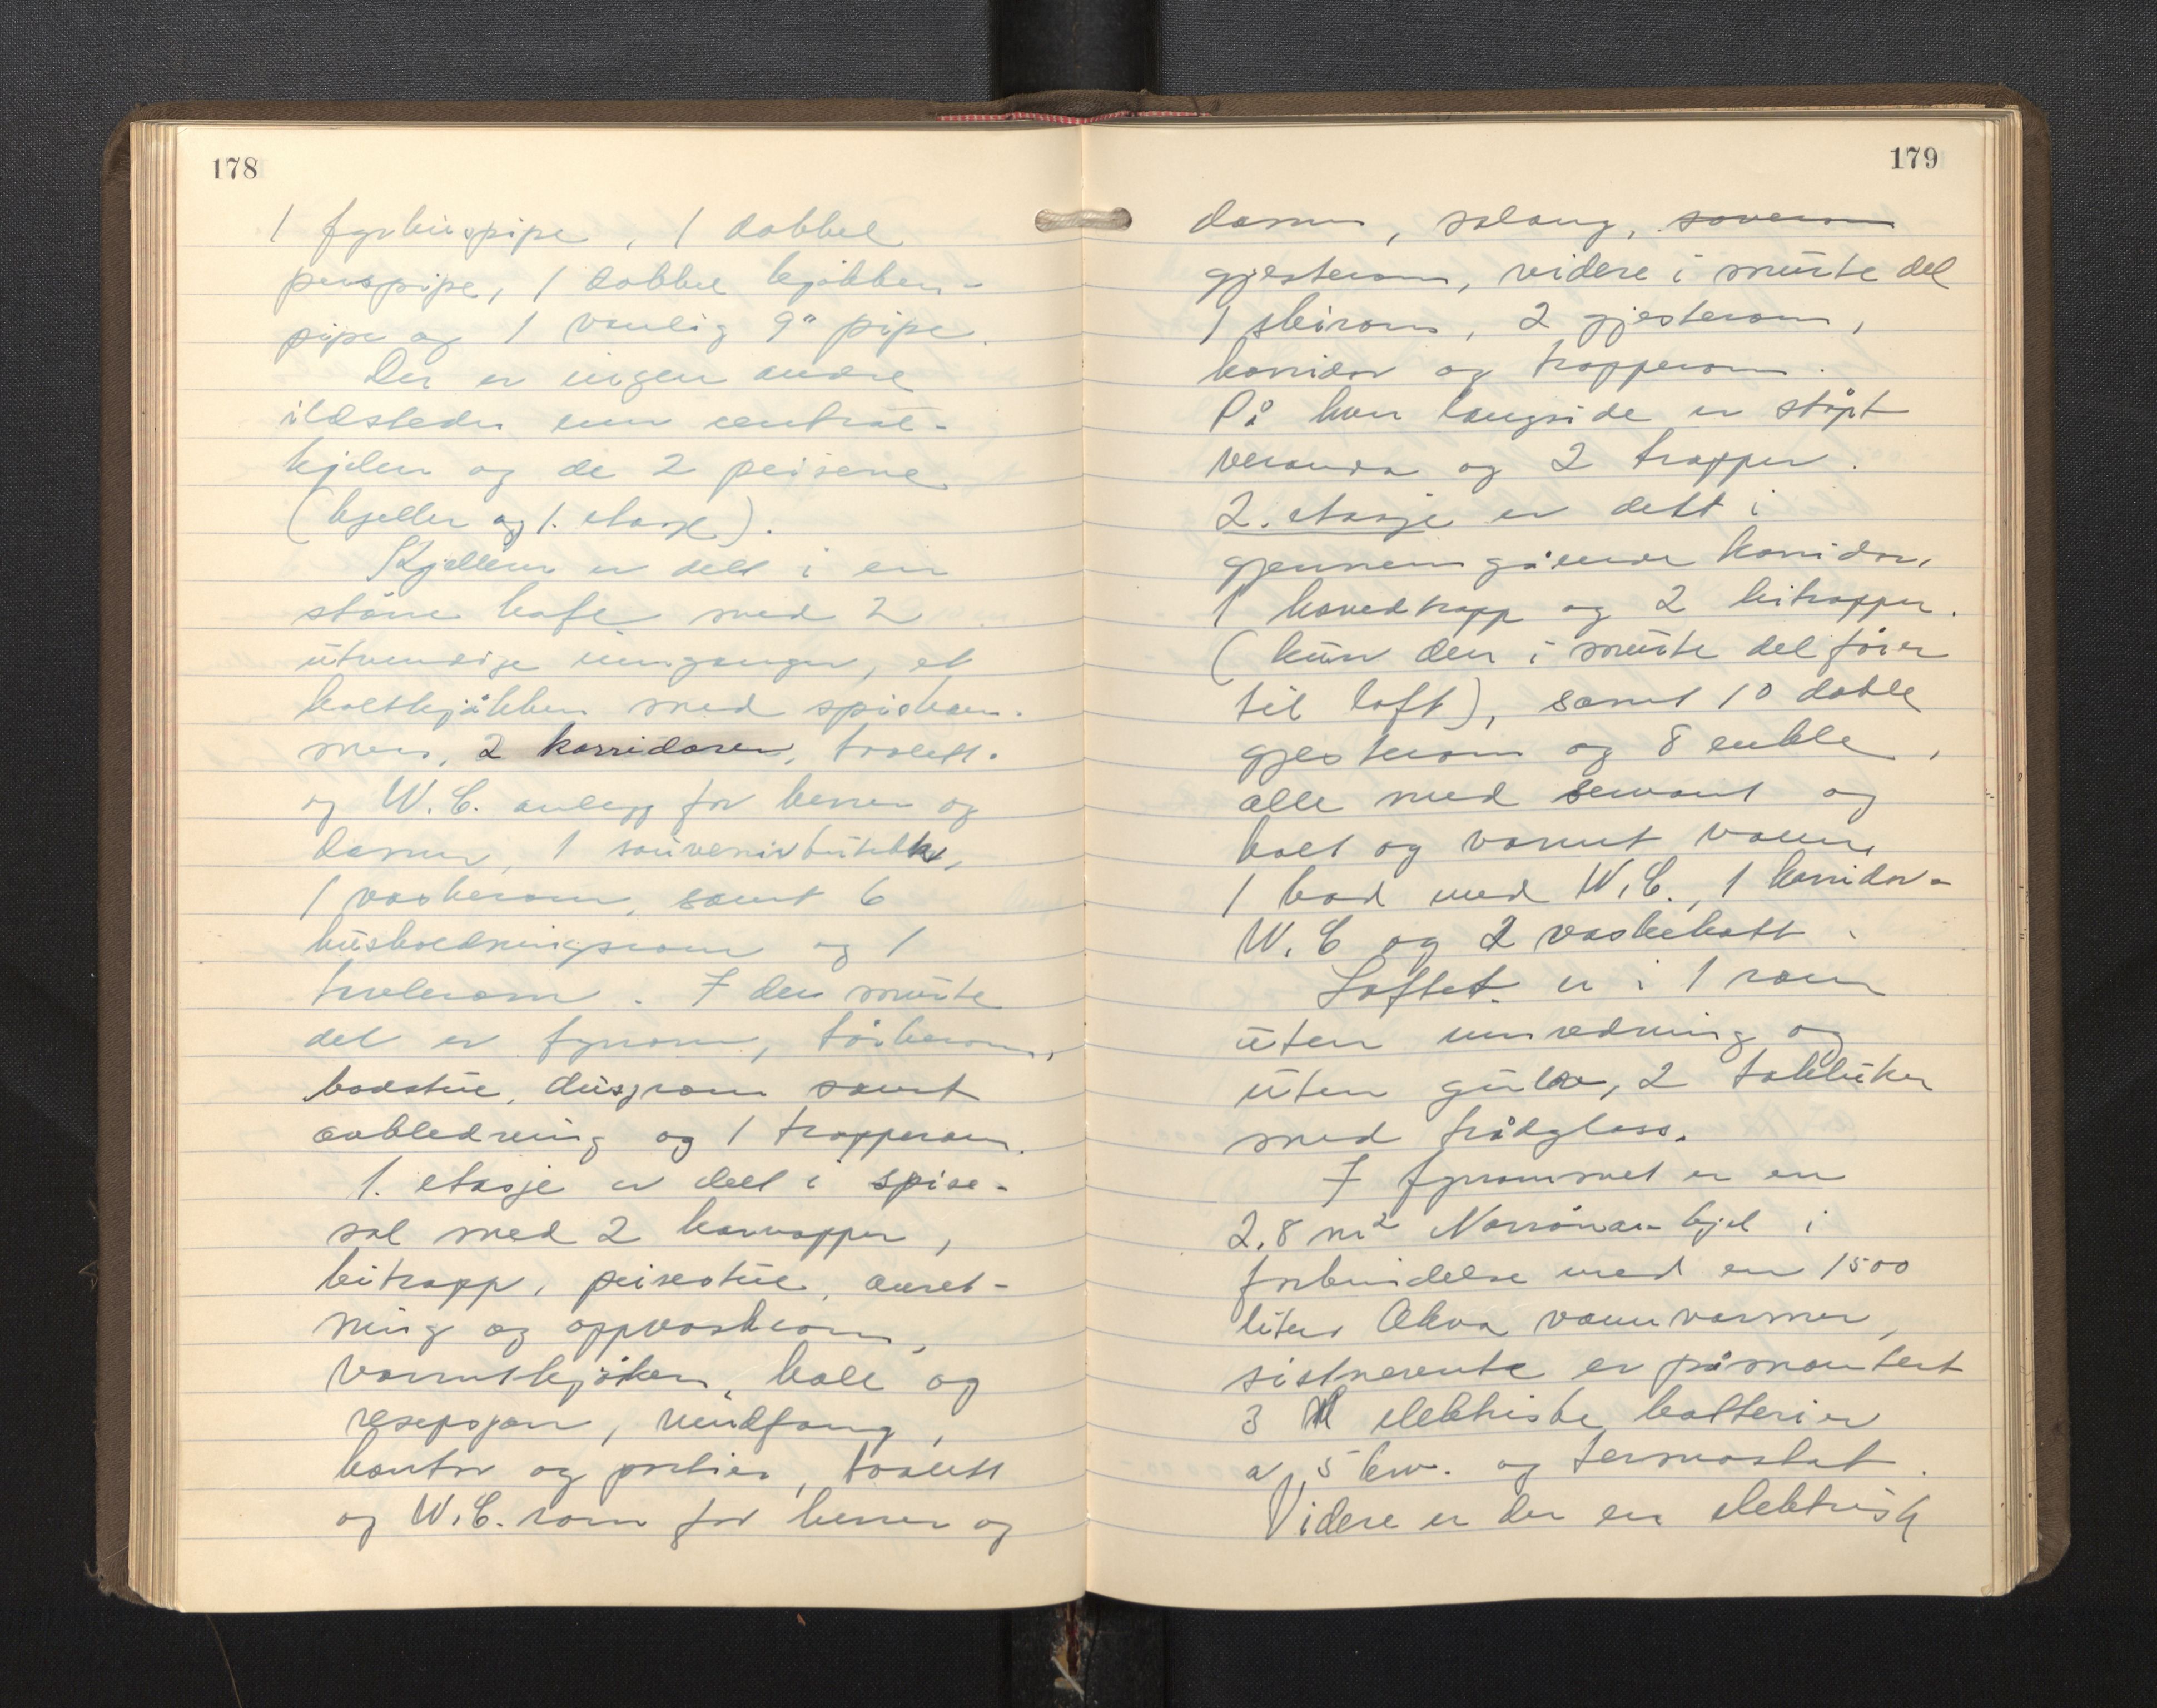 178
1 fyrhuspipe, 1 dobbel
peispipe, 1 dobbel kjøkken-
pipe og 1 vanlig 9" pipe.
Der er ingen andre
ildsteder enn central-
kjelen og de 2 peisene
(kjeller og 1. etasje).
Kjelleren er delt i en
større kafe med 2
utvendige innganger, et
koldtkjøkken med spiskam-
mer, 2 korridorer, toalett-
og W.C. anlegg for herrer og
damer, 1 souvenirbutikk,
1 vaskerom, samt 6
husholdningsrom og 1
rulerom. I den murte
del er fyrrom, tørkerom,
badstue, dusjrom samt
avkledning og 1 trapperom.
1. etasje er delt i spise-
sal med 2 karnapper,
bitrapp, peisestue, anret-
ning og oppvaskrom,
varmtkjøken, hall og
resepsjon, vindfang,
kontor og portier, toalett
og W.C. rom for herrer og
179
damer, salong, soverom
gjesterom, videre i murte del
1 skirom, 2 gjesterom,
korridor og trapperom.
På hver langside er støpt
veranda og 2 trapper.
2. etasje er delt i
gjennemgående korridor,
1 hovedtrapp og 2 bitrapper.
(kun den i murte del fører
til loft), samt 10 doble
gjesterom og 8 enkle,
alle med servant og
kalt og varmt vann,
1 bad med W.C., 1 korridor-
W.C og 2 vaskekott.
Loftet er i 1 rom
uten innredning og
uten gulv, 2 takluker
med trådglass.
I fyrrommet er en
2,8 m² Norrøna-kjel i
forbindelse med en 1500
liters Akva vannvarmer,
sistnevnte er påmontert
3 elektriske batterier
a 5 kw. og termostat.
Videre er der en elektrisk